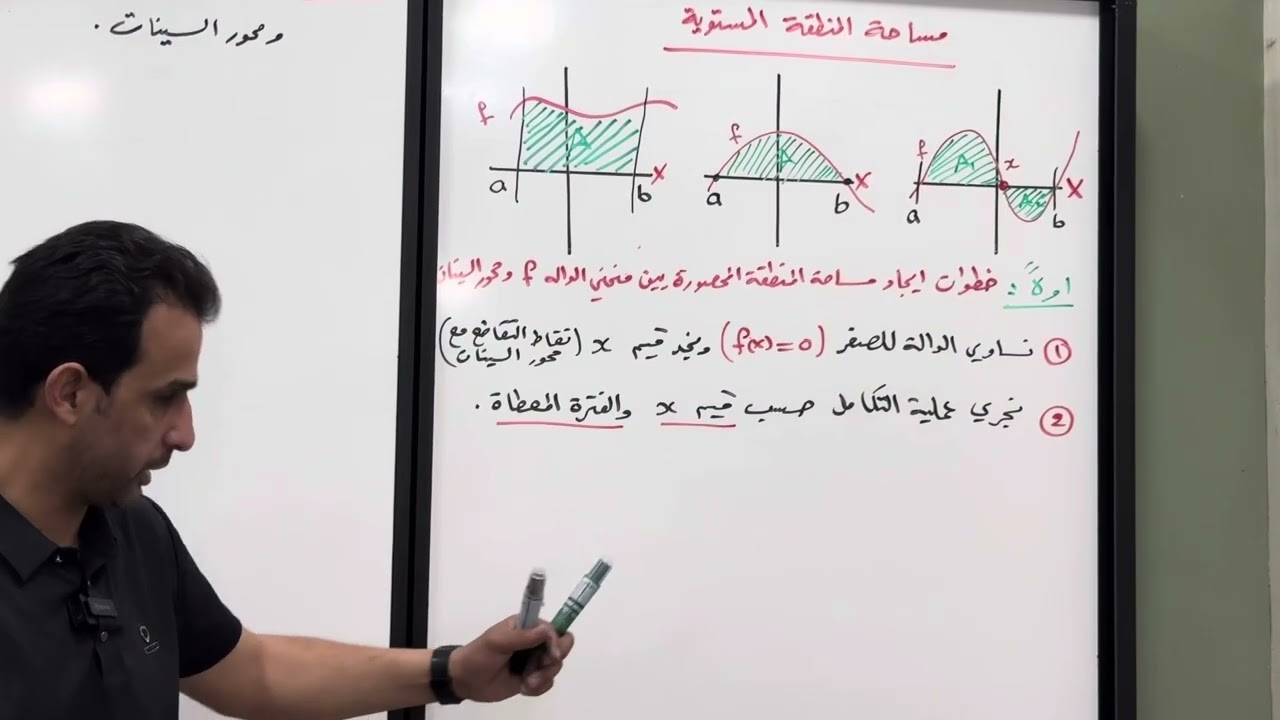 ومحور السينات .
مساحة المنطقة المستوية
f A a b X
f A a b X
f A₁ x A₂ a b X
اولاً : خطوات ايجاد مساحة المنطقة المحصورة بين منحني الداله f ومحور السينات
① نساوي الدالة للصفر (f(x)=0) ونجد قيم x (نقاط التقاطع مع محور السينات)
② نجري عملية التكامل حسب قيم x والفترة المعطاة .